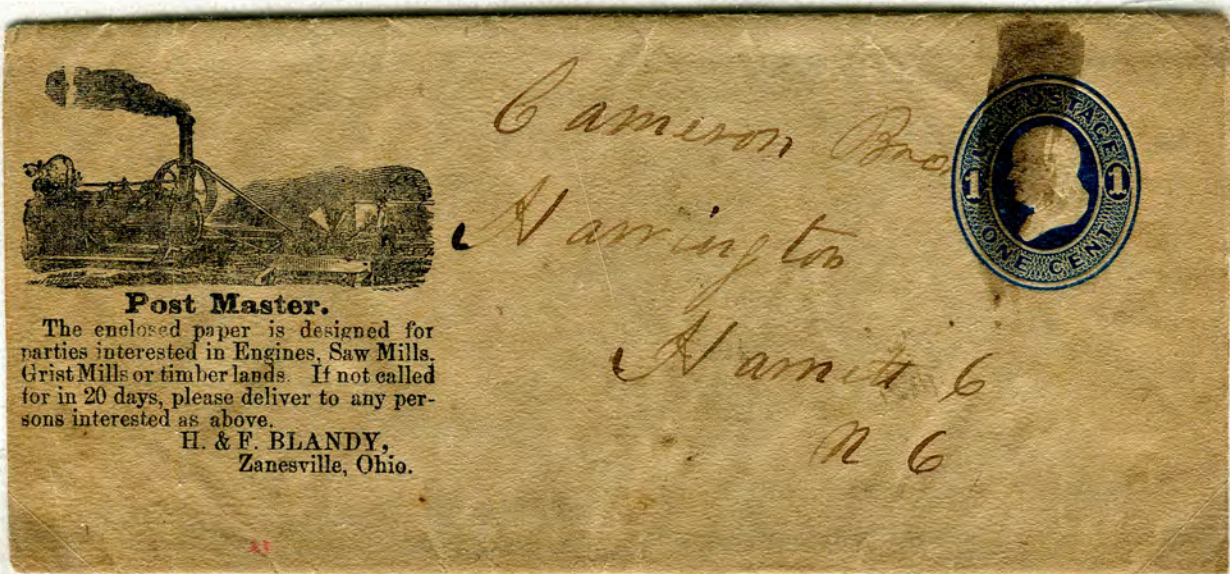 Post Master.
The enclosed paper is designed for
parties interested in Engines, Saw Mills,
Grist Mills or timber lands. If not called
for in 20 days, please deliver to any per-
sons interested as above.
H. & F. BLANDY,
Zanesville, Ohio.
Cameron Bro
Harrington
Harnett C
N C
U.S. POSTAGE
1 1
ONE CENT